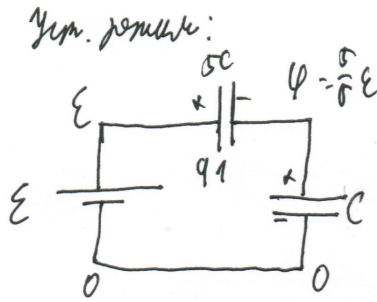 Уст. режим:
5C
ε + − φ = 5/6 ε
ε q1 + C
−
0 0